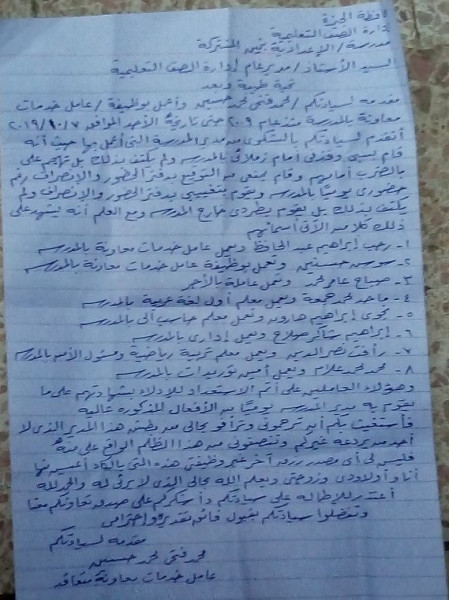 محافظة الجيزة
إدارة الصف التعليمية
مدرسة / الإعدادية بنين المشتركة
السيد الأستاذ / مدير عام إدارة الصف التعليمية
تحية طيبة وبعد
مقدمه لسيادتكم / محمد فتحى محمد حسنين وأعمل بوظيفة / عامل خدمات
معاونة بالمدرسة منذ عام ٢٠٠٩ حتى تاريخه الأحد الموافق ٢٠١٩/١٠/٧
أتقدم لسيادتكم بالشكوى من مدير المدرسة التى أعمل بها حيث أنه
قام بسبى وقذفى أمام زملائى بالمدرسه ولم يكتف بذلك بل تهجم على
بالضرب أمامهم وقام بمنعى من التوقيع بدفتر الحضور والإنصراف رغم
حضورى يومياً بالمدرسه ويقوم بتغييبى بدفتر الحضور والإنصراف ولم
يكتف بذلك بل يقوم بطردى خارج المدرسه ومع العلم أنه يشهد على
ذلك كلا من الآتى أسمائهم
١- رجب إبراهيم عبد الحافظ ويعمل عامل خدمات معاونة بالمدرسه
٢- سوسن حسنين وتعمل بوظيفة عامل خدمات معاونة بالمدرسه
٣- صباح عامر محمد وتعمل عاملة بالأجر
٤- ماجد محمد جمعة ويعمل معلم أول لغة عربية بالمدرسه
٥- نجوى إبراهيم هارون وتعمل معلم حاسب آلى بالمدرسه
٦- إبراهيم شاكر صلاح ويعمل إدارى بالمدرسه
٧- رأفت نصر الدين ويعمل معلم تربية رياضية ومسئول الأمن بالمدرسه
٨- محمد محمد علام ويعمل أمين توريدات بالمدرسه
وهؤلاء العاملين على أتم الاستعداد للإدلاء بشهادتهم على ما
يقوم به مدير المدرسه يومياً من الأفعال المذكوره عاليه
فأستغيث بكم أن ترحمونى وترأفو بحالى من بطش هذا المدير الذى لا
أحد يردعه غيركم وتنصفونى من هذا الظلم الواقع على منه
فليس لى أى مصدر رزق آخر غير وظيفتى هذه التى بالكاد أعيش منها
أنا وأولادى وزوجتى ويعلم الله بحالى الذى لا يرقى له والحمد لله
أعتذر للإطاله على سيادتكم وأشكركم على صدق تعاونكم معنا
وتفضلوا سيادتكم بقبول فائق تقديرى وإحترامى
مقدمه لسيادتكم
محمد فتحى محمد حسنين
عامل خدمات معاونة متعاقد